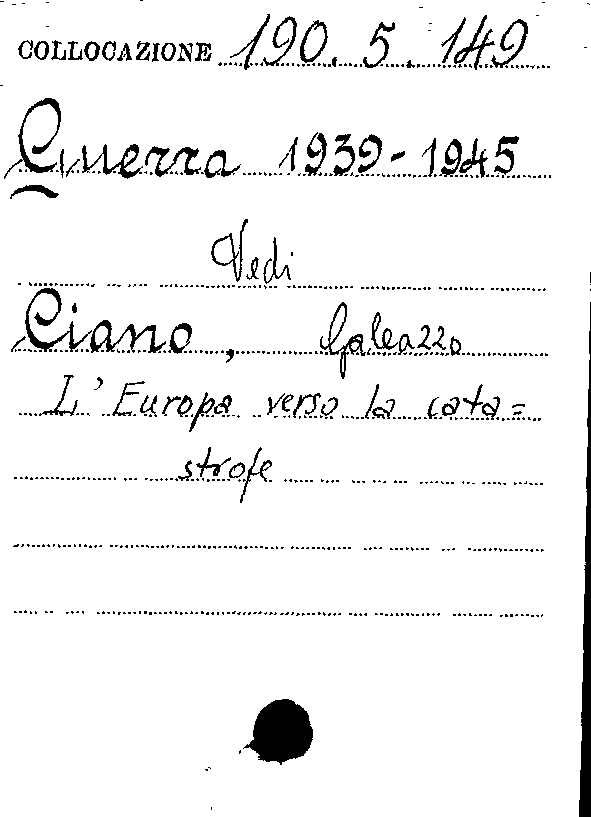 COLLOCAZIONE 190.5.149
Guerra 1939-1945
Vedi
Ciano, Galeazzo
L'Europa verso la cata=
strofe